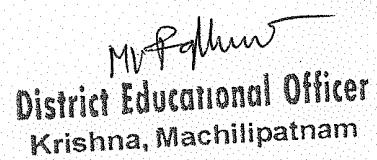 District Educational Officer
Krishna, Machilipatnam